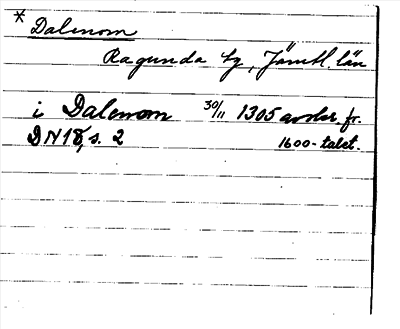 * Dalenom
Ragunda tg, Jämtl. län
i Dalenom 30/11 1305 avskr. fr.
DN 18, s. 2 1600-talet.